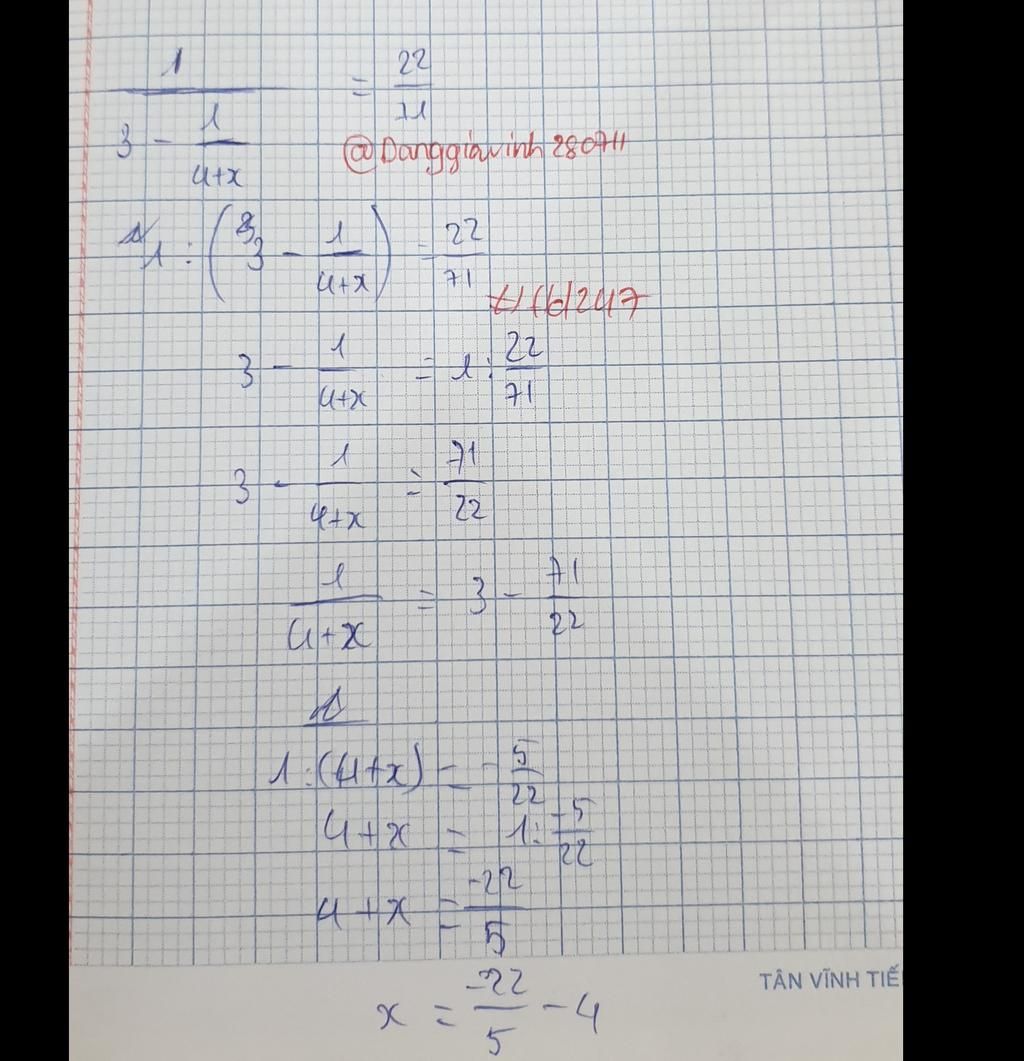 1 / (3 - 1/(4+x)) = 22/71
@Danggiavinh280711
1 : (3 - 1/(4+x)) = 22/71
3 - 1/(4+x) = 1 : 22/71
3 - 1/(4+x) = 71/22
1/(4+x) = 3 - 71/22
1 : (4+x) = -5/22
4+x = 1 : -5/22
4+x = -22/5
TÂN VĨNH TIẾ
x = -22/5 - 4